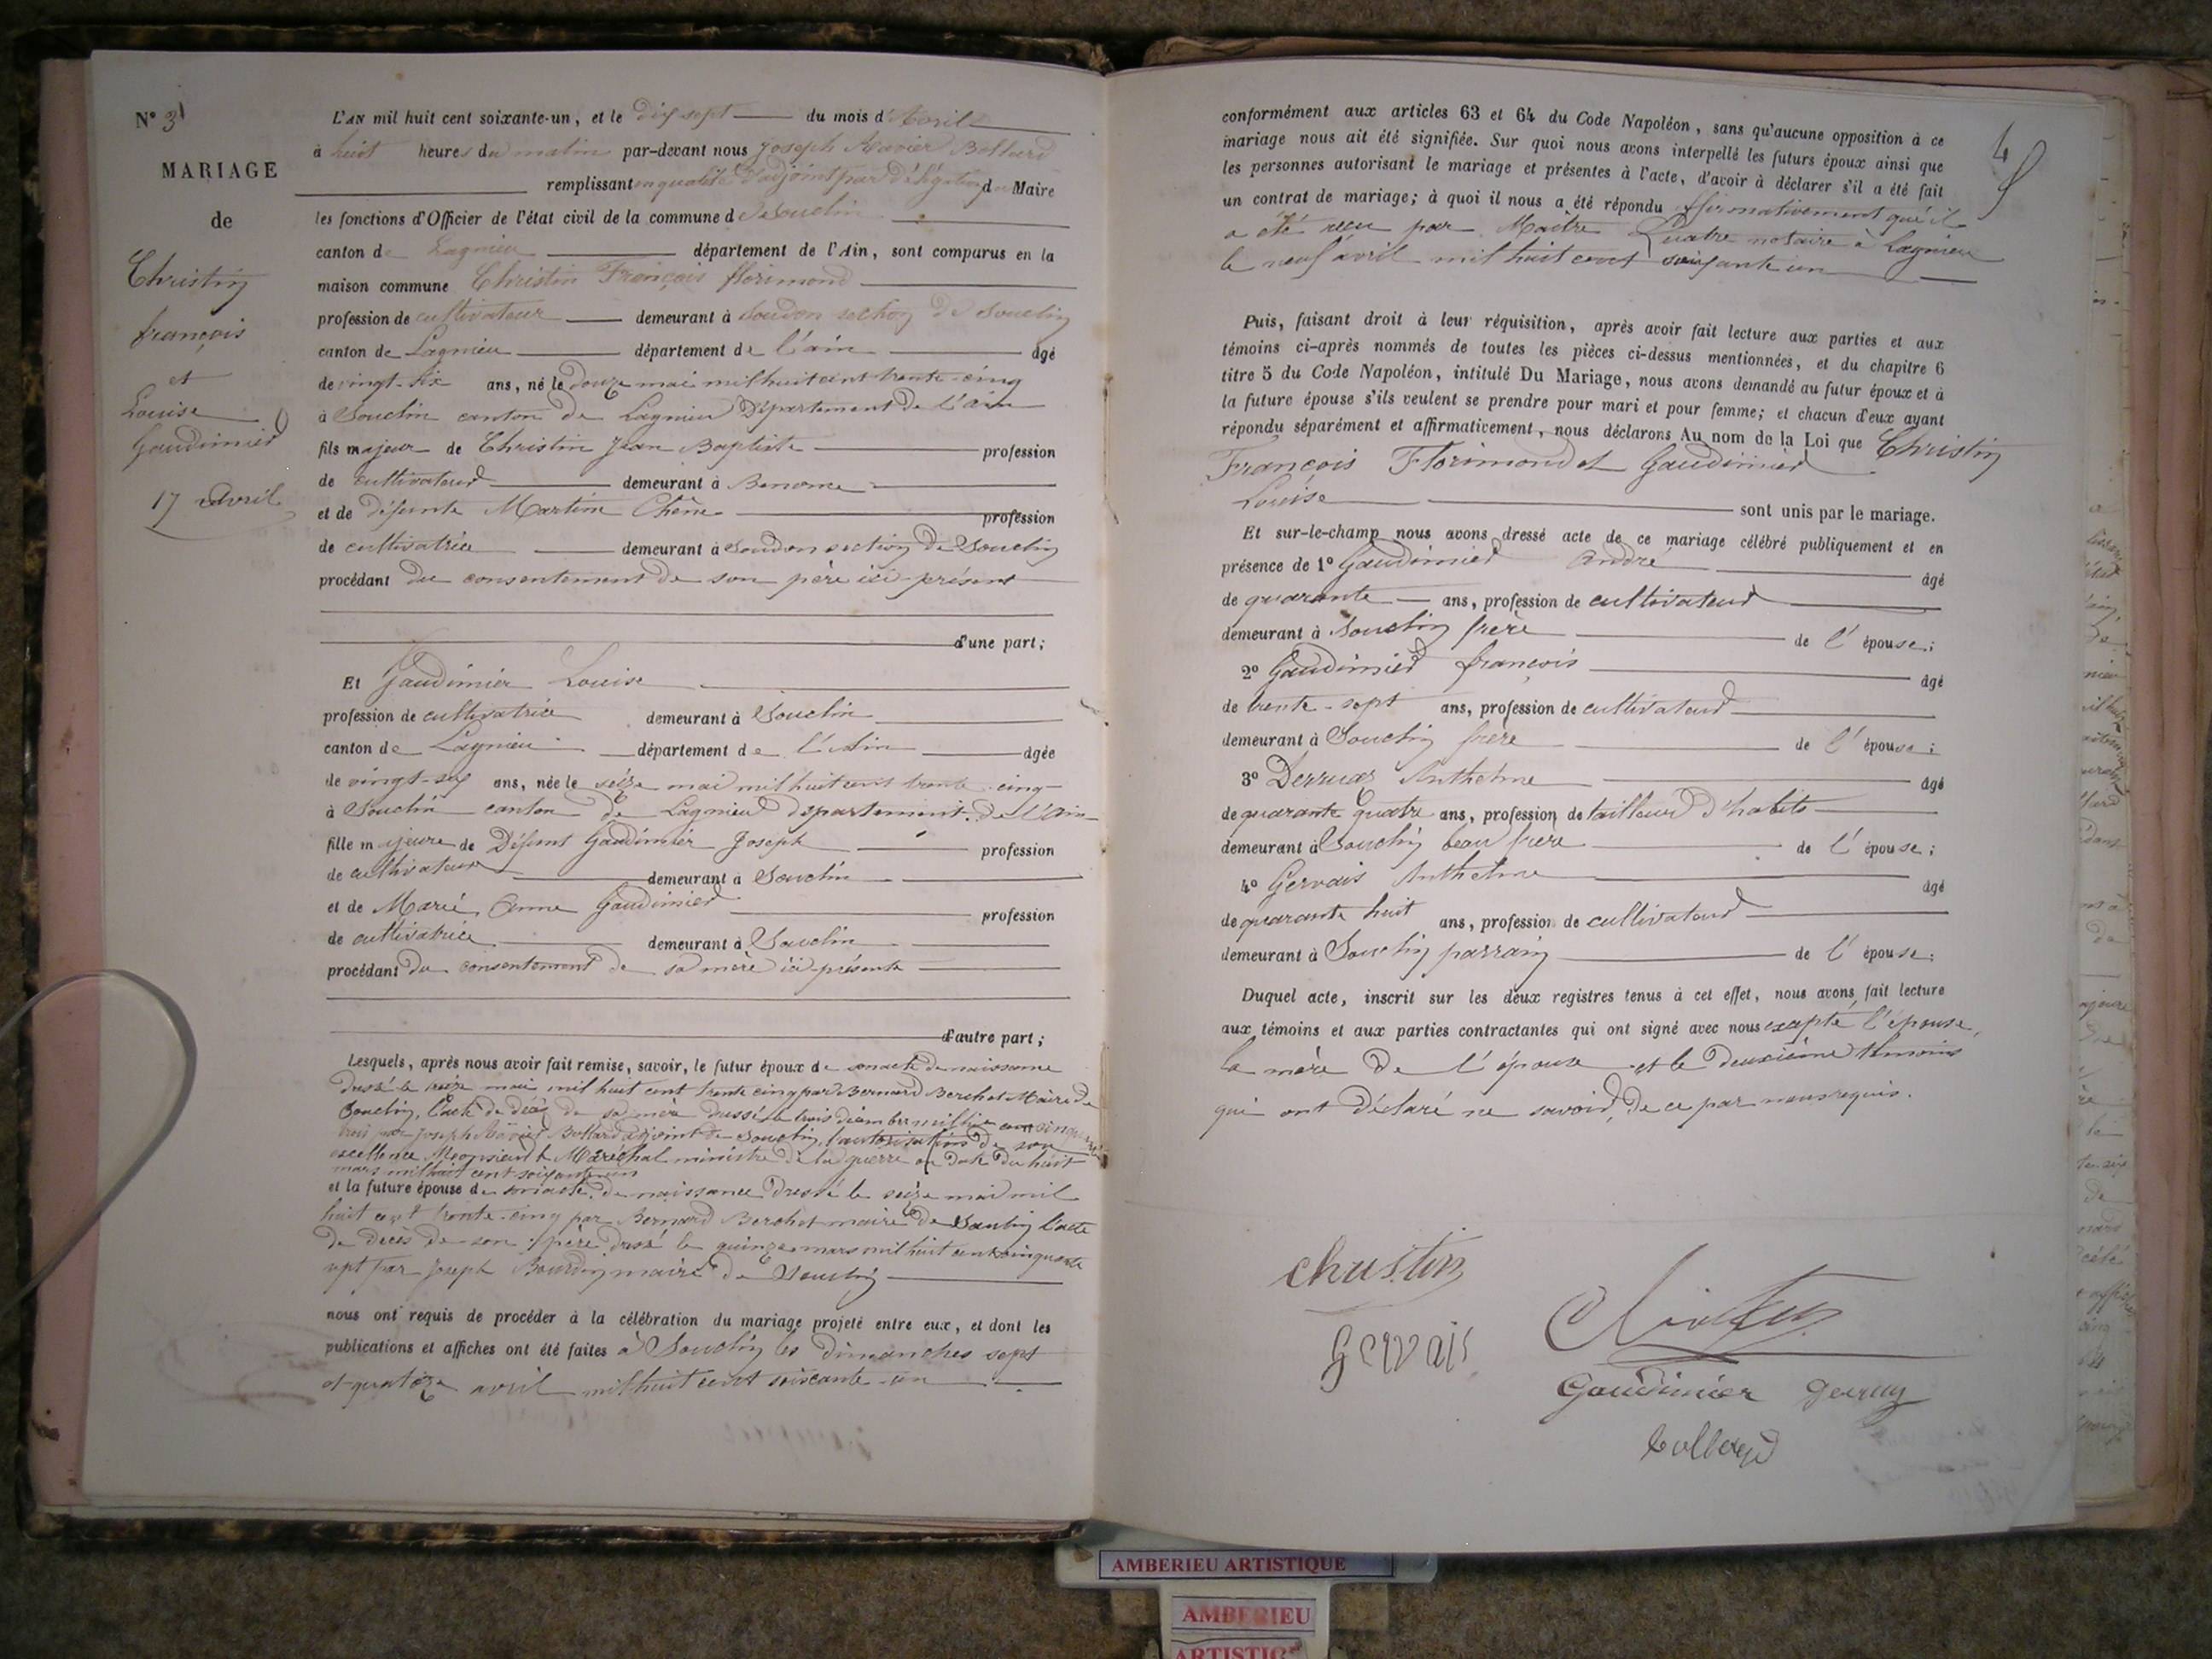 N° 3
MARIAGE
de
Christin
françois
et
Louise
Gaudimier
17 Avril
L'AN mil huit cent soixante-un, et le dix sept du mois d'Avril
à huit heures du matin par-devant nous Joseph Xavier Bollard
remplissant en qualité d'adjoint par Délégation du Maire
les fonctions d'Officier de l'état civil de la commune de Souclin
canton de Lagnieu département de l'Ain, sont comparus en la
maison commune Christin François florimond
profession de cultivateur demeurant à Soudon section De Souclin
canton de Lagnieu département de l'ain âgé
de vingt-six ans, né le Douze mai mil huit cent trente-cinq
à Souclin canton de Lagnieu Département de l'ain
fils majeur de Christin Jean Baptiste profession
de cultivateur demeurant à Benonce
et de défunte Martine Chêne profession
de cultivatrice demeurant à Soudon section De Souclin
procédant du consentement de son père ici-présent
d'une part;
Et Gaudimier Louise
profession de cultivatrice demeurant à Souclin
canton de Lagnieu département de l'Ain âgée
de vingt-six ans, née le seize mai mil huit cent trente-cinq
à Souclin canton de Lagnieu département De l'Ain
fille majeure de Défunt Gaudimier Joseph profession
de cultivateur demeurant à Souclin
et de Marie Anne Gaudimier profession
de cultivatrice demeurant à Souclin
procédant du consentement de sa mère ici-présente
d'autre part;
Lesquels, après nous avoir fait remise, savoir, le futur époux de son acte de naissance
dressé le treize mai mil huit cent trente cinq par Bernard Berchet Maire de
Souclin, l'acte de décès de sa mère dressé le trois décembre mil huit cent cinquante
trois par Joseph Xavier Bollard adjoint de Souclin, l'autorisation de son
excellence Monsieur le Maréchal ministre de la guerre en date du huit
mars mil huit cent soixante un
et la future épouse de son acte de naissance dressé le seize mai mil
huit cent trente-cinq par Bernard Berchet maire de Souclin l'acte
de décès de son père dressé le quinze mars mil huit cent cinquante
sept par Joseph Bourdin maire de Souclin
nous ont requis de procéder à la célébration du mariage projeté entre eux, et dont les
publications et affiches ont été faites à Souclin les dimanches sept
et quatorze avril mil huit cent soixante-un
4
conformément aux articles 63 et 64 du Code Napoléon, sans qu'aucune opposition à ce
mariage nous ait été signifiée. Sur quoi nous avons interpellé les futurs époux ainsi que
les personnes autorisant le mariage et présentes à l'acte, d'avoir à déclarer s'il a été fait
un contrat de mariage; à quoi il nous a été répondu affirmativement qu'il
a été reçu par Maître Quatre notaire à Lagnieu
le neuf avril mil huit cent soixante un
Puis, faisant droit à leur réquisition, après avoir fait lecture aux parties et aux
témoins ci-après nommés de toutes les pièces ci-dessus mentionnées, et du chapitre 6
titre 5 du Code Napoléon, intitulé Du Mariage, nous avons demandé au futur époux et à
la future épouse s'ils veulent se prendre pour mari et pour femme; et chacun d'eux ayant
répondu séparément et affirmativement, nous déclarons Au nom de la Loi que Christin
François Florimond et Gaudimier
Louise sont unis par le mariage.
Et sur-le-champ nous avons dressé acte de ce mariage célébré publiquement et en
présence de 1° Gaudimier André âgé
de quarante ans, profession de cultivateur
demeurant à Souclin frère de l'épouse;
2° Gaudimier françois âgé
de trente-sept ans, profession de cultivateur
demeurant à Souclin frère de l'épouse;
3° Derruaz Anthelme âgé
de quarante quatre ans, profession de tailleur d'habits
demeurant à Souclin beau frère de l'épouse;
4° Gervais Anthelme âgé
de quarante huit ans, profession de cultivateur
demeurant à Souclin parrain de l'épouse;
Duquel acte, inscrit sur les deux registres tenus à cet effet, nous avons fait lecture
aux témoins et aux parties contractantes qui ont signé avec nous excepté l'épouse,
la mère De l'épouse et le deuxième témoins
qui ont déclaré ne savoir, De ce par nous requis.
christin
Gervais
Gaudimier
AMBERIEU ARTISTIQUE
AMBERIEU